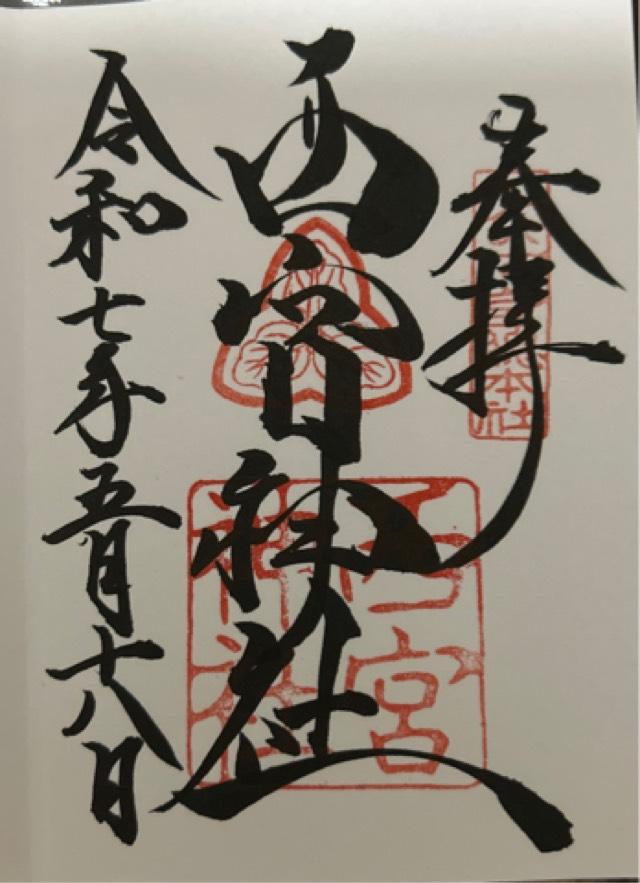 奉拝
西宮神社
令和七年五月十八日
本社
西宮
神社